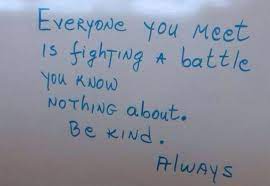 EVERYONE YOU MEET
IS fighTING A battle
YOU KNOW
NOTHING about.
BE KIND.
AlWAYS